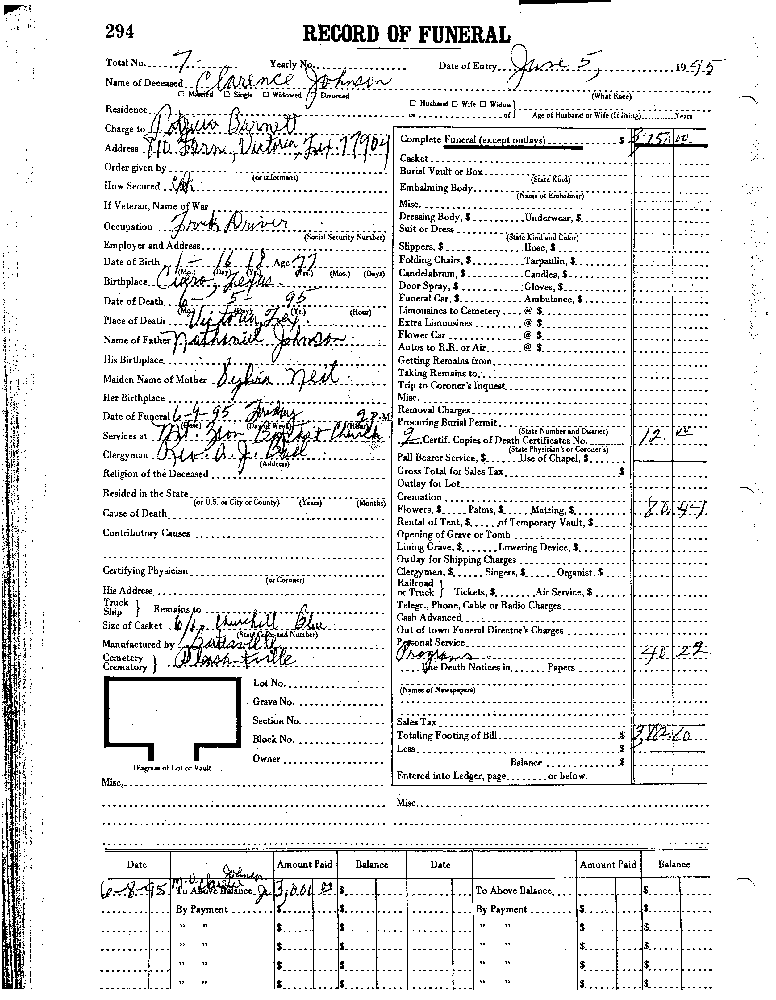 294
RECORD OF FUNERAL
Total No. 7 Yearly No. Date of Entry June 5, 1995
Name of Deceased Clarence Johnson
☐ Married ☐ Single ☐ Widowed ☐ Divorced (What Race)
☐ Husband ☐ Wife ☐ Widow
Residence or of Age of Husband or Wife (if living) Years
Charge to Burnett
Address Fern, Victoria, Tex. 77904
Order given by
(or informant)
How Secured
If Veteran, Name of War
Occupation Truck Driver
(Social Security Number)
Employer and Address
Date of Birth 1- 16 18 Age 77
(Mo.) (Day) (Yr.) (Yrs.) (Mos.) (Days)
Birthplace Cuero, Texas
Date of Death 6- 5- 95
(Mo.) (Day) (Yr.) (Hour)
Place of Death Victoria, Tex.
Name of Father Nathaniel Johnson
His Birthplace
Maiden Name of Mother Sylvia
Her Birthplace
Date of Funeral 6-9-95 Friday 2 P.M.
(Date) (Day of Week)
Services at Mt. Zion Baptist Church
Clergyman Rev. A. J.
(Address)
Religion of the Deceased
Resided in the State
(or U.S. or City or County) (Years) (Months)
Cause of Death
Contributory Causes
Certifying Physician
(or Coroner)
His Address
Truck Ship } Remains to
Size of Casket 6/6 Churchill Blue
(State Color and Number)
Manufactured by
Cemetery Crematory }
Lot No.
Grave No.
Section No.
Block No.
Owner
Diagram of Lot or Vault
Misc.
Complete Funeral (except outlays) $
Casket
Burial Vault or Box
(State Kind)
Embalming Body
(Name of Embalmer)
Misc.
Dressing Body, $ Underwear, $
Suit or Dress
(State Kind and Color)
Slippers, $ Hose, $
Folding Chairs, $ Tarpaulin, $
Candelabrum, $ Candles, $
Door Spray, $ Gloves, $
Funeral Car, $ Ambulance, $
Limousines to Cemetery @ $
Extra Limousines @ $
Flower Car @ $
Autos to R.R. or Air @ $
Getting Remains from
Taking Remains to
Trip to Coroner's Inquest
Misc.
Removal Charges
Procuring Burial Permit
(State Number and District)
2 Certif. Copies of Death Certificates No. 12 00
(State Physician's or Coroner's)
Pall Bearer Service, $ Use of Chapel, $
Gross Total for Sales Tax $
Outlay for Lot
Cremation
Flowers, $ Palms, $ Matting, $
Rental of Tent, $ of Temporary Vault, $
Opening of Grave or Tomb
Lining Grave, $ Lowering Device, $
Outlay for Shipping Charges
Clergyman, $ Singers, $ Organist, $
Railroad or Truck } Tickets, $ Air Service, $
Telegr., Phone, Cable or Radio Charges
Cash Advanced
Out of town Funeral Director's Charges
Personal Service
Programs
Death Notices in Papers
(Names of Newspapers)
Sales Tax
Totaling Footing of Bill $
Less $
Balance $
Entered into Ledger, page or below.
Misc.
Date Amount Paid Balance Date Amount Paid Balance
6-8-95 To Above Balance $ To Above Balance $
By Payment $ $ By Payment $ $
" " $ $ " " $ $
" " $ $ " " $ $
" " $ $ " " $ $
" " $ $ " " $ $